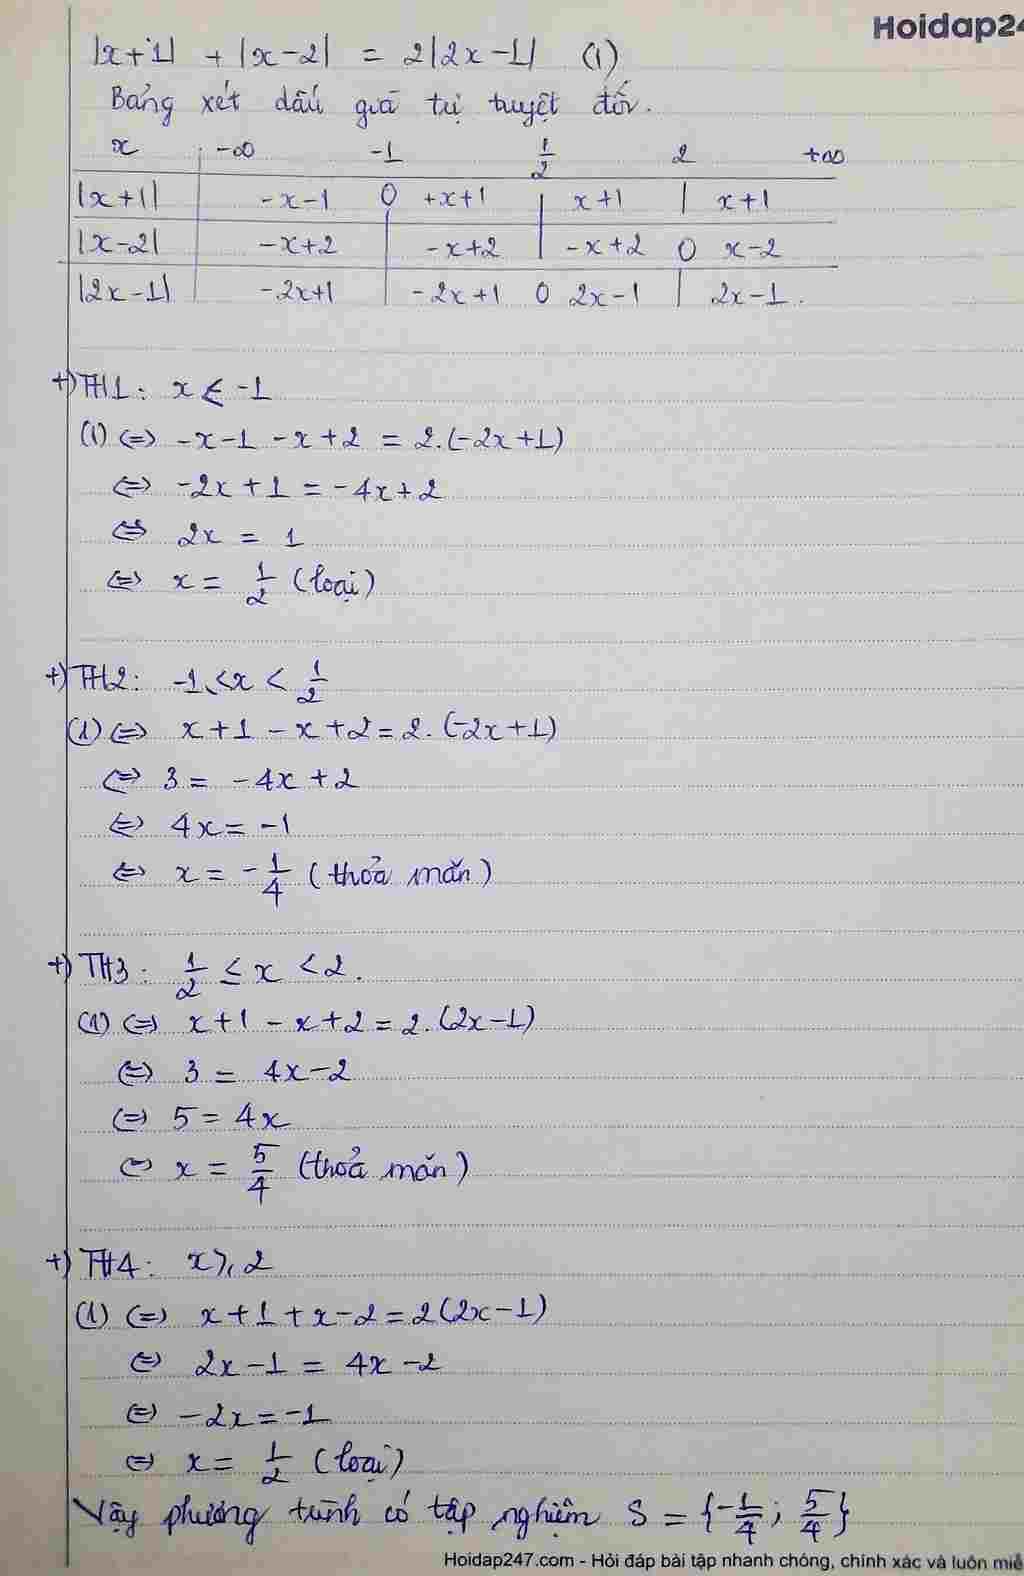 Hoidap24
|x+1| + |x-2| = 2|2x-1| (1)
Bảng xét dấu giá trị tuyệt đối.
x -∞ -1 1/2 2 +∞
|x+1| -x-1 0 +x+1 | x+1 | x+1
|x-2| -x+2 | -x+2 | -x+2 0 x-2
|2x-1| -2x+1 | -2x+1 0 2x-1 | 2x-1.
+) TH1: x < -1
(1) ⇔ -x-1 -x+2 = 2.(-2x+1)
⇔ -2x+1 = -4x+2
⇔ 2x = 1
⇔ x = 1/2 (loại)
+) TH2: -1 ≤ x < 1/2
(1) ⇔ x+1 -x+2 = 2.(-2x+1)
⇔ 3 = -4x+2
⇔ 4x = -1
⇔ x = -1/4 (thỏa mãn)
+) TH3: 1/2 ≤ x < 2.
(1) ⇔ x+1 -x+2 = 2.(2x-1)
⇔ 3 = 4x-2
⇔ 5 = 4x
⇔ x = 5/4 (thỏa mãn)
+) TH4: x ≥ 2
(1) ⇔ x+1+x-2 = 2(2x-1)
⇔ 2x-1 = 4x-2
⇔ -2x = -1
⇔ x = 1/2 (loại)
Vậy phương trình có tập nghiệm S = {-1/4; 5/4}
Hoidap247.com - Hỏi đáp bài tập nhanh chóng, chính xác và luôn miễ